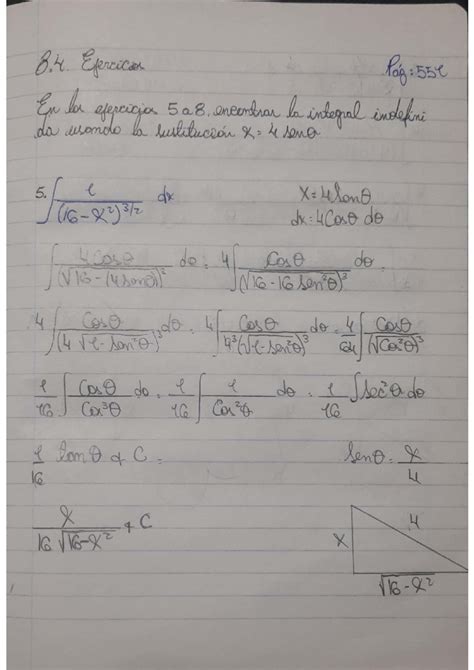 8.4. Ejercicios
Pág: 551
En los ejercicios 5 a 8, encontrar la integral indefini
da usando la sustitución x = 4 senθ
5. ∫ 1/(16-x²)^3/2 dx   x = 4 Senθ
dx = 4 Cosθ dθ
∫ 4 Cosθ/(√16-(4 senθ)²)³ dθ = 4 ∫ Cosθ/(√16-16 sen²θ)³ dθ =
4 ∫ Cosθ/(4 √1-Sen²θ)³ dθ = 4 ∫ Cosθ/4³(√1-Sen²θ)³ dθ = 4/64 ∫ Cosθ/(√Cos²θ)³
1/16 ∫ Cosθ/Cos³θ dθ = 1/16 ∫ 1/Cos²θ dθ = 1/16 ∫ Sec²θ dθ
1/16 tanθ + C =   Senθ = x/4
x/16 √16-x² + C
x
4
√16-x²